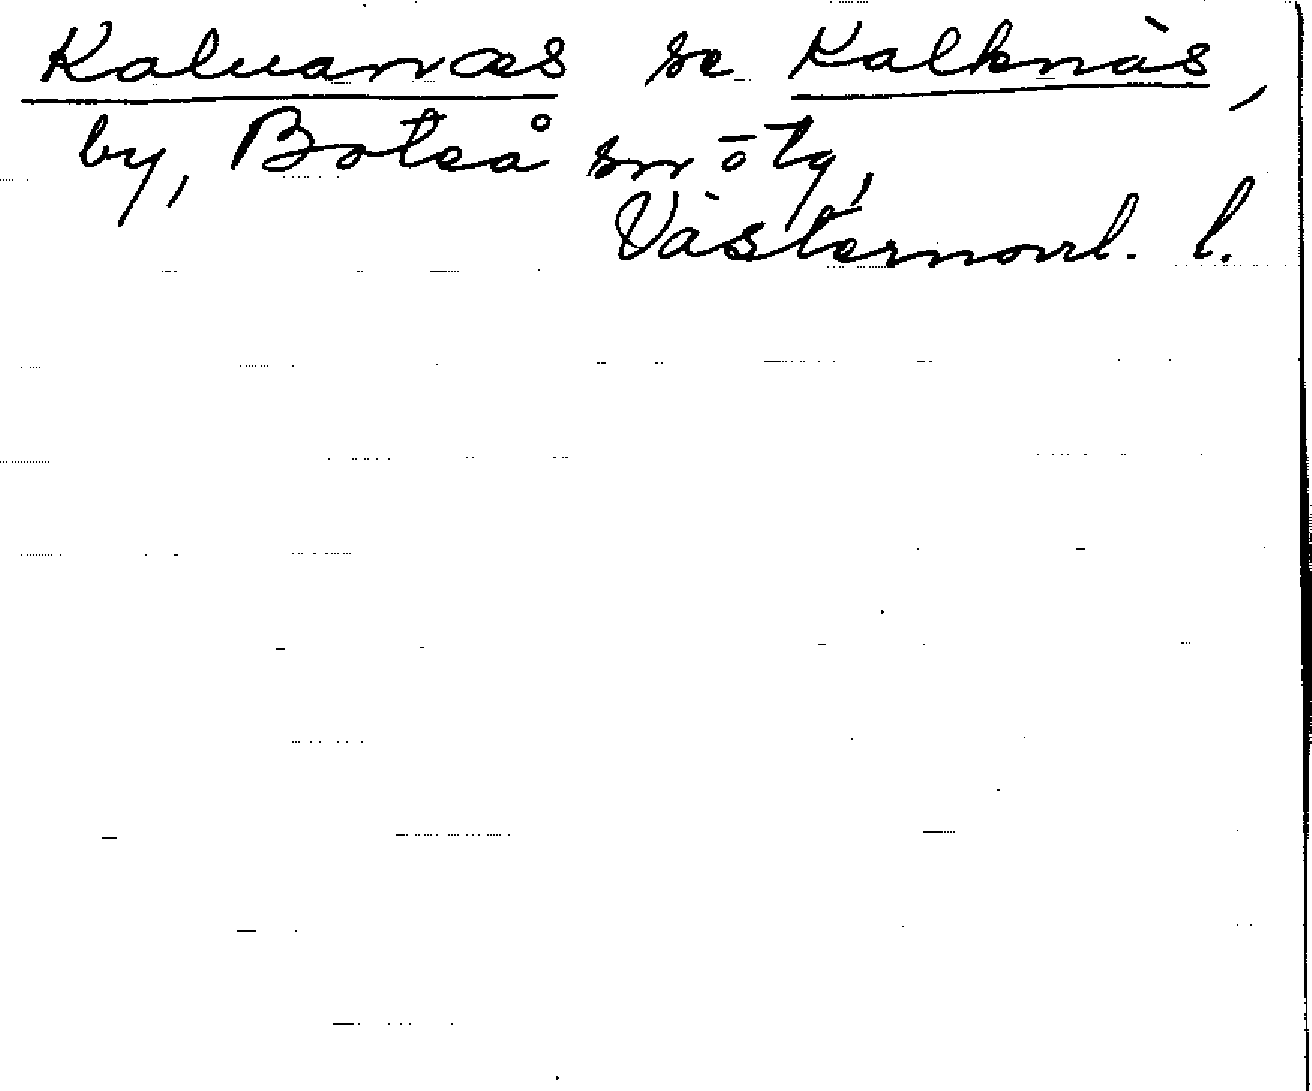 Kaluanæs se Kalknäs,
by, Boteå sn o tg,
Västernorrl. l.